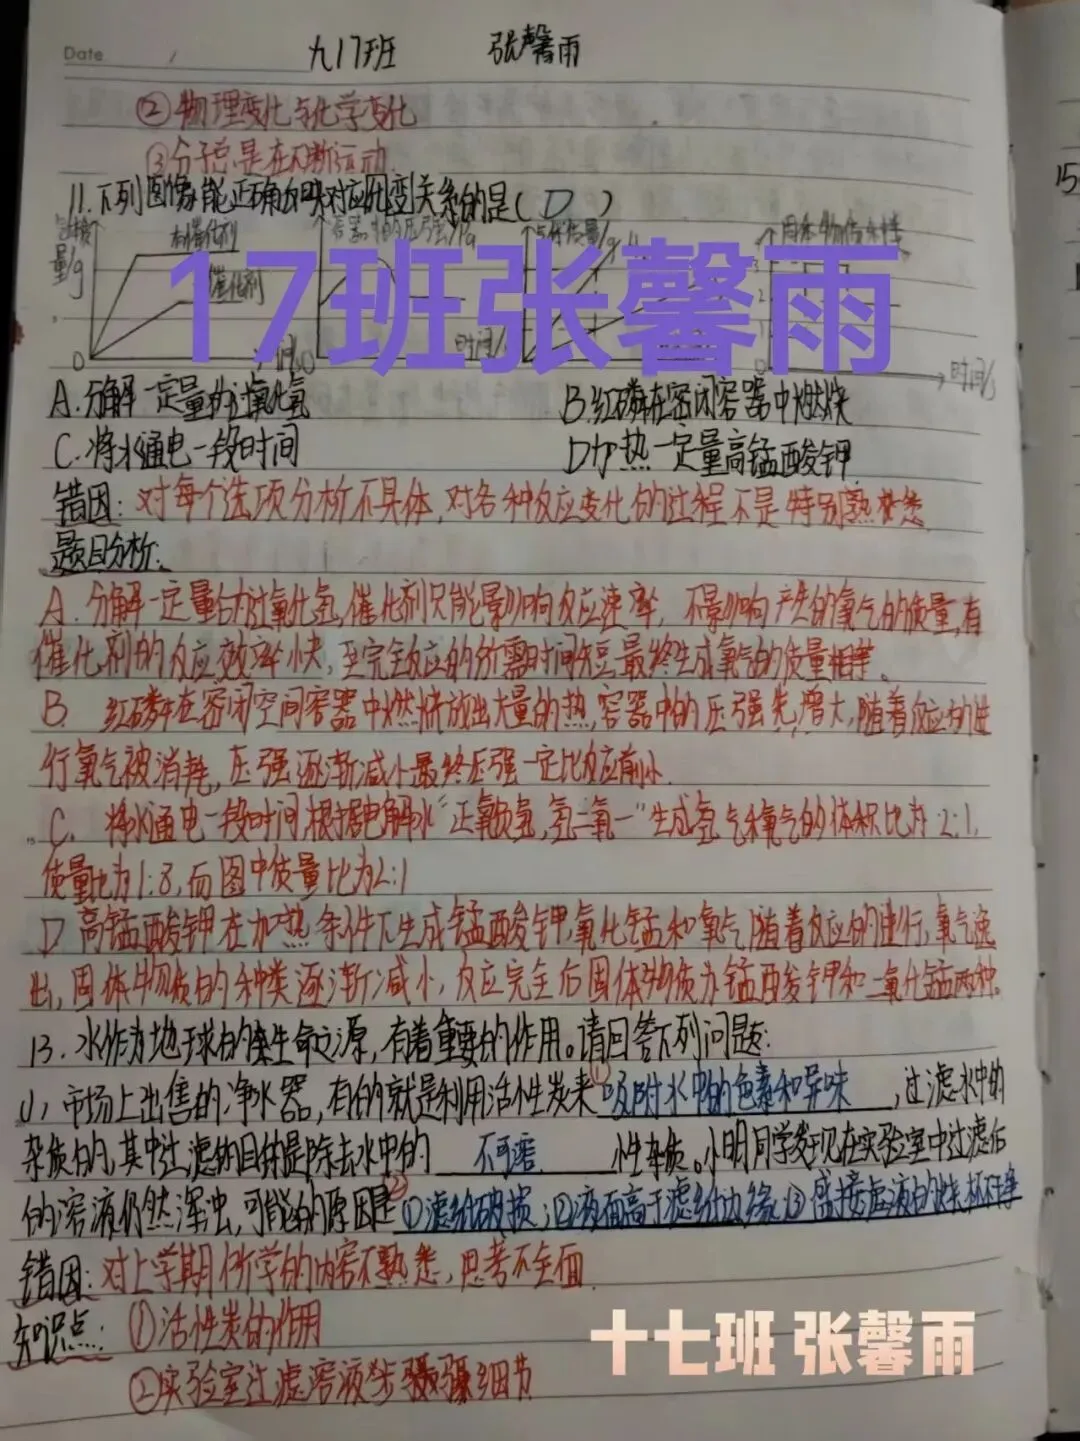 Date
九17班 张馨雨
②物理变化与化学变化
③分子总是在不断运动
11.下列图像能正确反映对应的变关系的是(D)
量/g
有催化剂
催化剂
0
时间/s
固体物质种类
3
2
1
0
时间/s
17班张馨雨
A.分解一定量的过氧化氢
B.红磷在密闭容器中燃烧
C.将水通电一段时间
D加热一定量高锰酸钾
错因:对每个选项分析不具体,对各种反应变化的过程不是特别熟悉
题目分析:
A.分解一定量的过氧化氢,催化剂只能影响反应速率,不影响产生的氧气的质量,有
催化剂的反应效率快,至完全反应的所需时间短,最终生成氧气的质量相等。
B. 红磷在密闭空间容器中燃烧放出大量的热,容器中的压强先增大,随着反应的进
行氧气被消耗,压强逐渐减小最终压强一定比反应前小.
C. 将水通电一段时间,根据电解水“正氧负氢,氢二氧一”生成氢气和氧气的体积比为2:1,
质量比为1:8,而图中质量比为2:1
D 高锰酸钾在加热条件下生成锰酸钾,氧化锰和氧气,随着反应的进行,氧气逸
出,固体物质的种类逐渐减小,反应完全后固体物质为锰酸钾和二氧化锰两种.
13.水作为地球的生命之源,有着重要的作用。请回答下列问题:
(1)市场上出售的净水器,有的就是利用活性炭来①吸附水中的色素和异味,过滤水中的
杂质的,其中过滤的目的是除去水中的 不可溶 性杂质。小明同学发现在实验室中过滤后
的溶液仍然浑浊,可能的原因是②①滤纸破损;②液面高于滤纸边缘;③盛接虑液的烧杯不净
错因:对上学期所学的内容不熟悉,思考不全面.
知识点: ①活性炭的作用
②实验室过滤溶液步骤细节
十七班 张馨雨